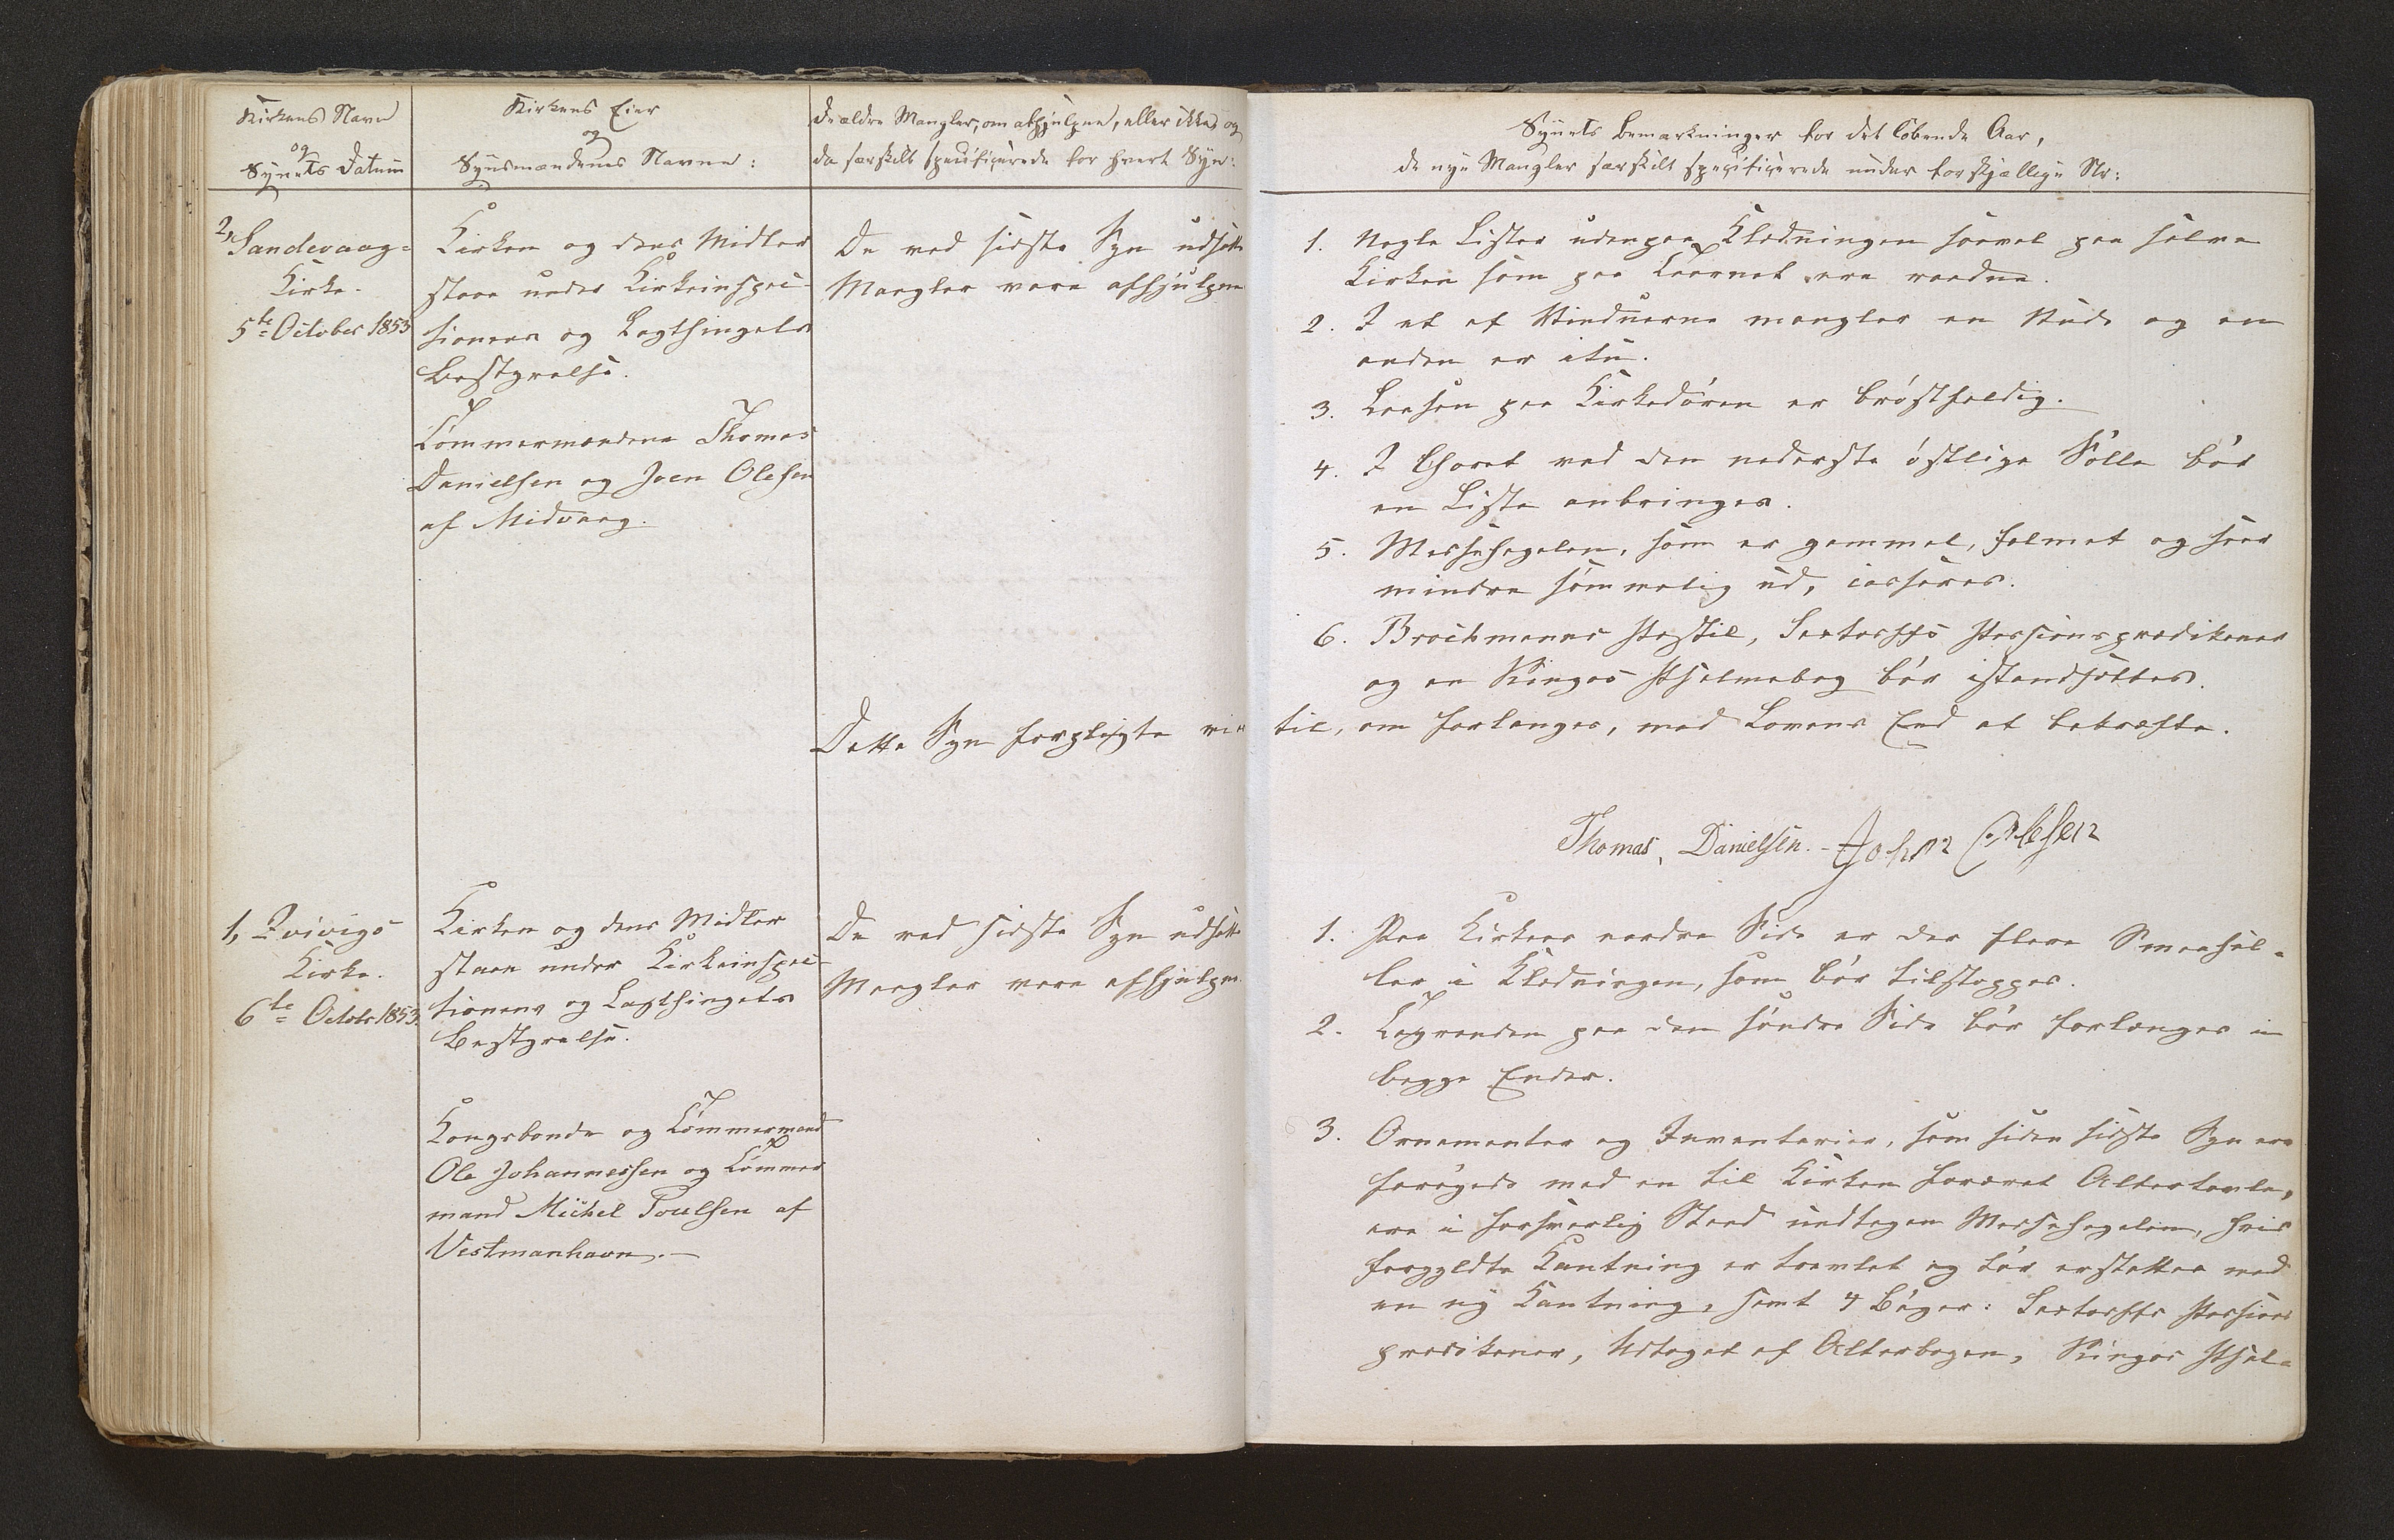 Kirkens Navn
og
Synets Datum
Kirkens Eier
og
Synsmændenes Navne:
De ældre Mangler, om afhjulpne, eller ikke, og
da særskilt specificerede for hvert Syn:
2, Sandevaag-
Kirke.
5te October 1853
Kirken og dens Midler
staae under Kirkeinspec-
tionens og Lagthingets
Bestyrelse.
Tømmermændene Thomas
Danielsen og Joen Olesen
af Midvaag.
De ved sidste Syn udsatte
Mangler vare afhjulpne
Dette Syn forpligte vi os
1, Qvivigs
Kirke.
6te Octobr. 1853.
Kirken og dens Midler
staae under Kirkeinspec-
tionens og Lagthingets
Bestyrelse.
Kongsbonde og Tømmermand
Ole Johannessen og Tømmer
mand Michel Poulsen af
Vestmanhavn.
De ved sidste Syn udsatte
Mangler vare afhjulpne.
Synets Bemærkninger for det løbende Aar,
de nye Mangler særskilt specificerede under forskjællige Nr:
1. Nogle Lister udenpaa Klædningen saavel paa selve
Kirken som paa Taarnet ere raadne.
2. I et af Vinduerne mangler en Rude og en
anden er itu.
3. Laasen paa Kirkedøren er brøstfældig.
4. I Choret ved den nederste østlige Stolle bør
en Liste anbringes.
5. Messehagelen, som er gammel, falmet og seer
mindre sømmelig ud, casseres.
6. Brochmanns Postil, Sartorffs Passionsprædikener
og en Kingos Psalmebog bør istandsættes.
til, om forlanges, med Lovens Eed at bekræfte.
Thomas Danielsen. - John Olesen
1. Paa Kirkens nordre Side er der flere Smaahul-
ler i Klædningen, som bør tilstoppes.
2. Tagrenden paa den søndre Side bør forlænges i
begge Ender.
3. Ornamenter og Inventarier, som siden sidste Syn ere
forøgede med en til Kirken foræret Altertavle,
ere i forsvarlig Stand undtagen Messehagelen, hvis
forgyldte Kantning er trævlet og bør erstattes med
en ny Kantning, samt 4 Bøger: Sartorffs Passions
prædikener, Udtoget af Alterbogen, Kingos Psal-